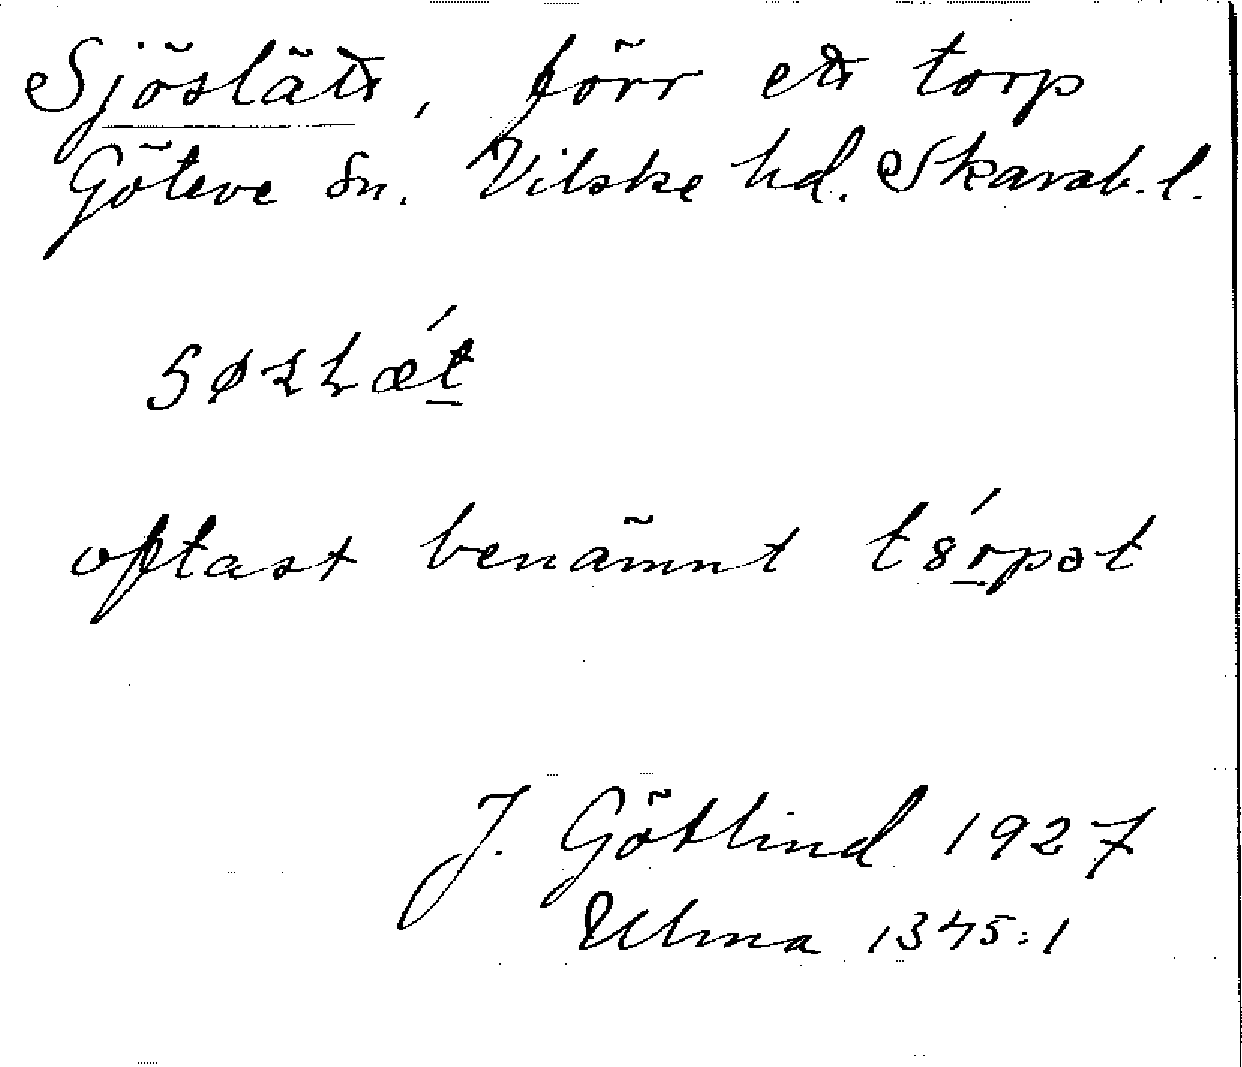 Sjöslätt, förr ett torp
Göteve sn. Vilske hd. Skarab. l.
oftast benämnt
J. Götlind 1927
Ulma 1345:1